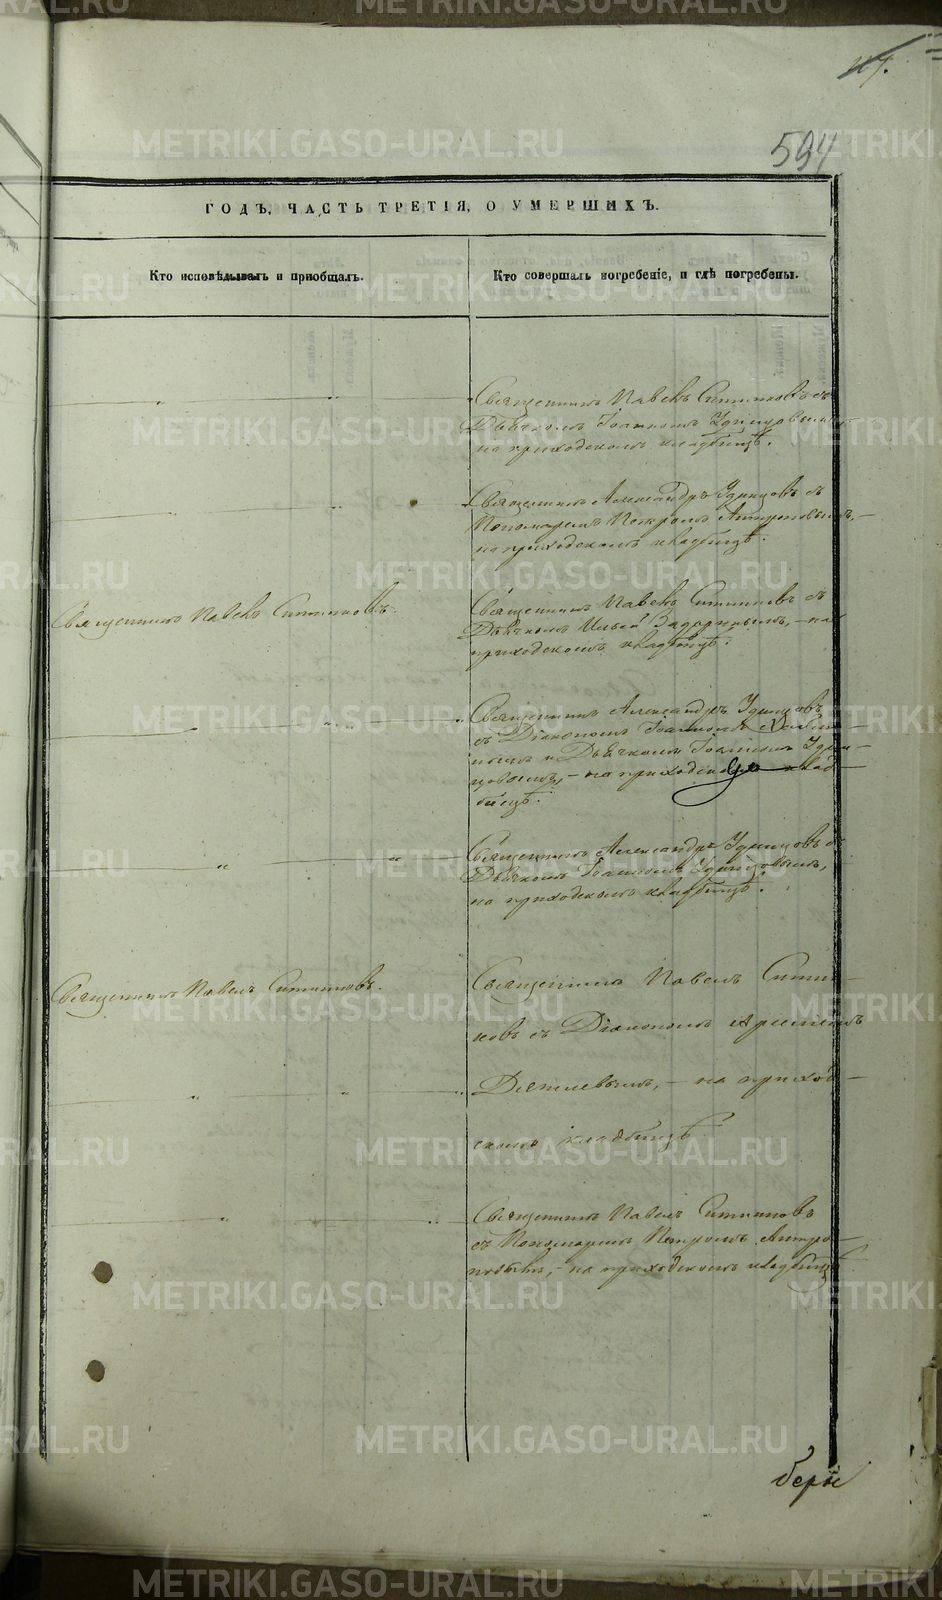 594
ГОДЪ, ЧАСТЬ ТРЕТІЯ, О УМЕРШИХЪ.
Кто исповѣдывалъ и пріобщалъ.
Кто совершалъ погребеніе, и гдѣ погребены.
Священникъ Павелъ Ситниковъ съ
Дьячкомъ Іоанномъ Удинцовымъ
на приходскомъ кладбищѣ.
Священникъ Александръ Удинцовъ съ
Пономаремъ Петромъ Антроповымъ,—
на приходскомъ кладбищѣ.
Священникъ Павелъ Ситниковъ.
Священникъ Павелъ Ситниковъ съ
Дьячкомъ Ильей Задоринымъ,—на
приходскомъ кладбищѣ.
Священникъ Александръ Удинцовъ
съ Діакономъ Іоанномъ
и Дьячкомъ Іоанномъ Удин-
цовымъ,—на приходскомъ клад-
бищѣ.
Священникъ Александръ Удинцовъ съ
Дьячкомъ Іоанномъ Удинцовымъ,
на приходскомъ кладбищѣ.
Священникъ Павелъ Ситниковъ.
Священникъ Павелъ Ситни-
ковъ съ Діакономъ Арсеніемъ
Дягилевымъ,—на приход-
скомъ кладбищѣ
Священникъ Павелъ Ситниковъ
съ Пономаремъ Петромъ Антро-
повымъ,—на приходскомъ кладбищѣ
METRIKI.GASO-URAL.RU